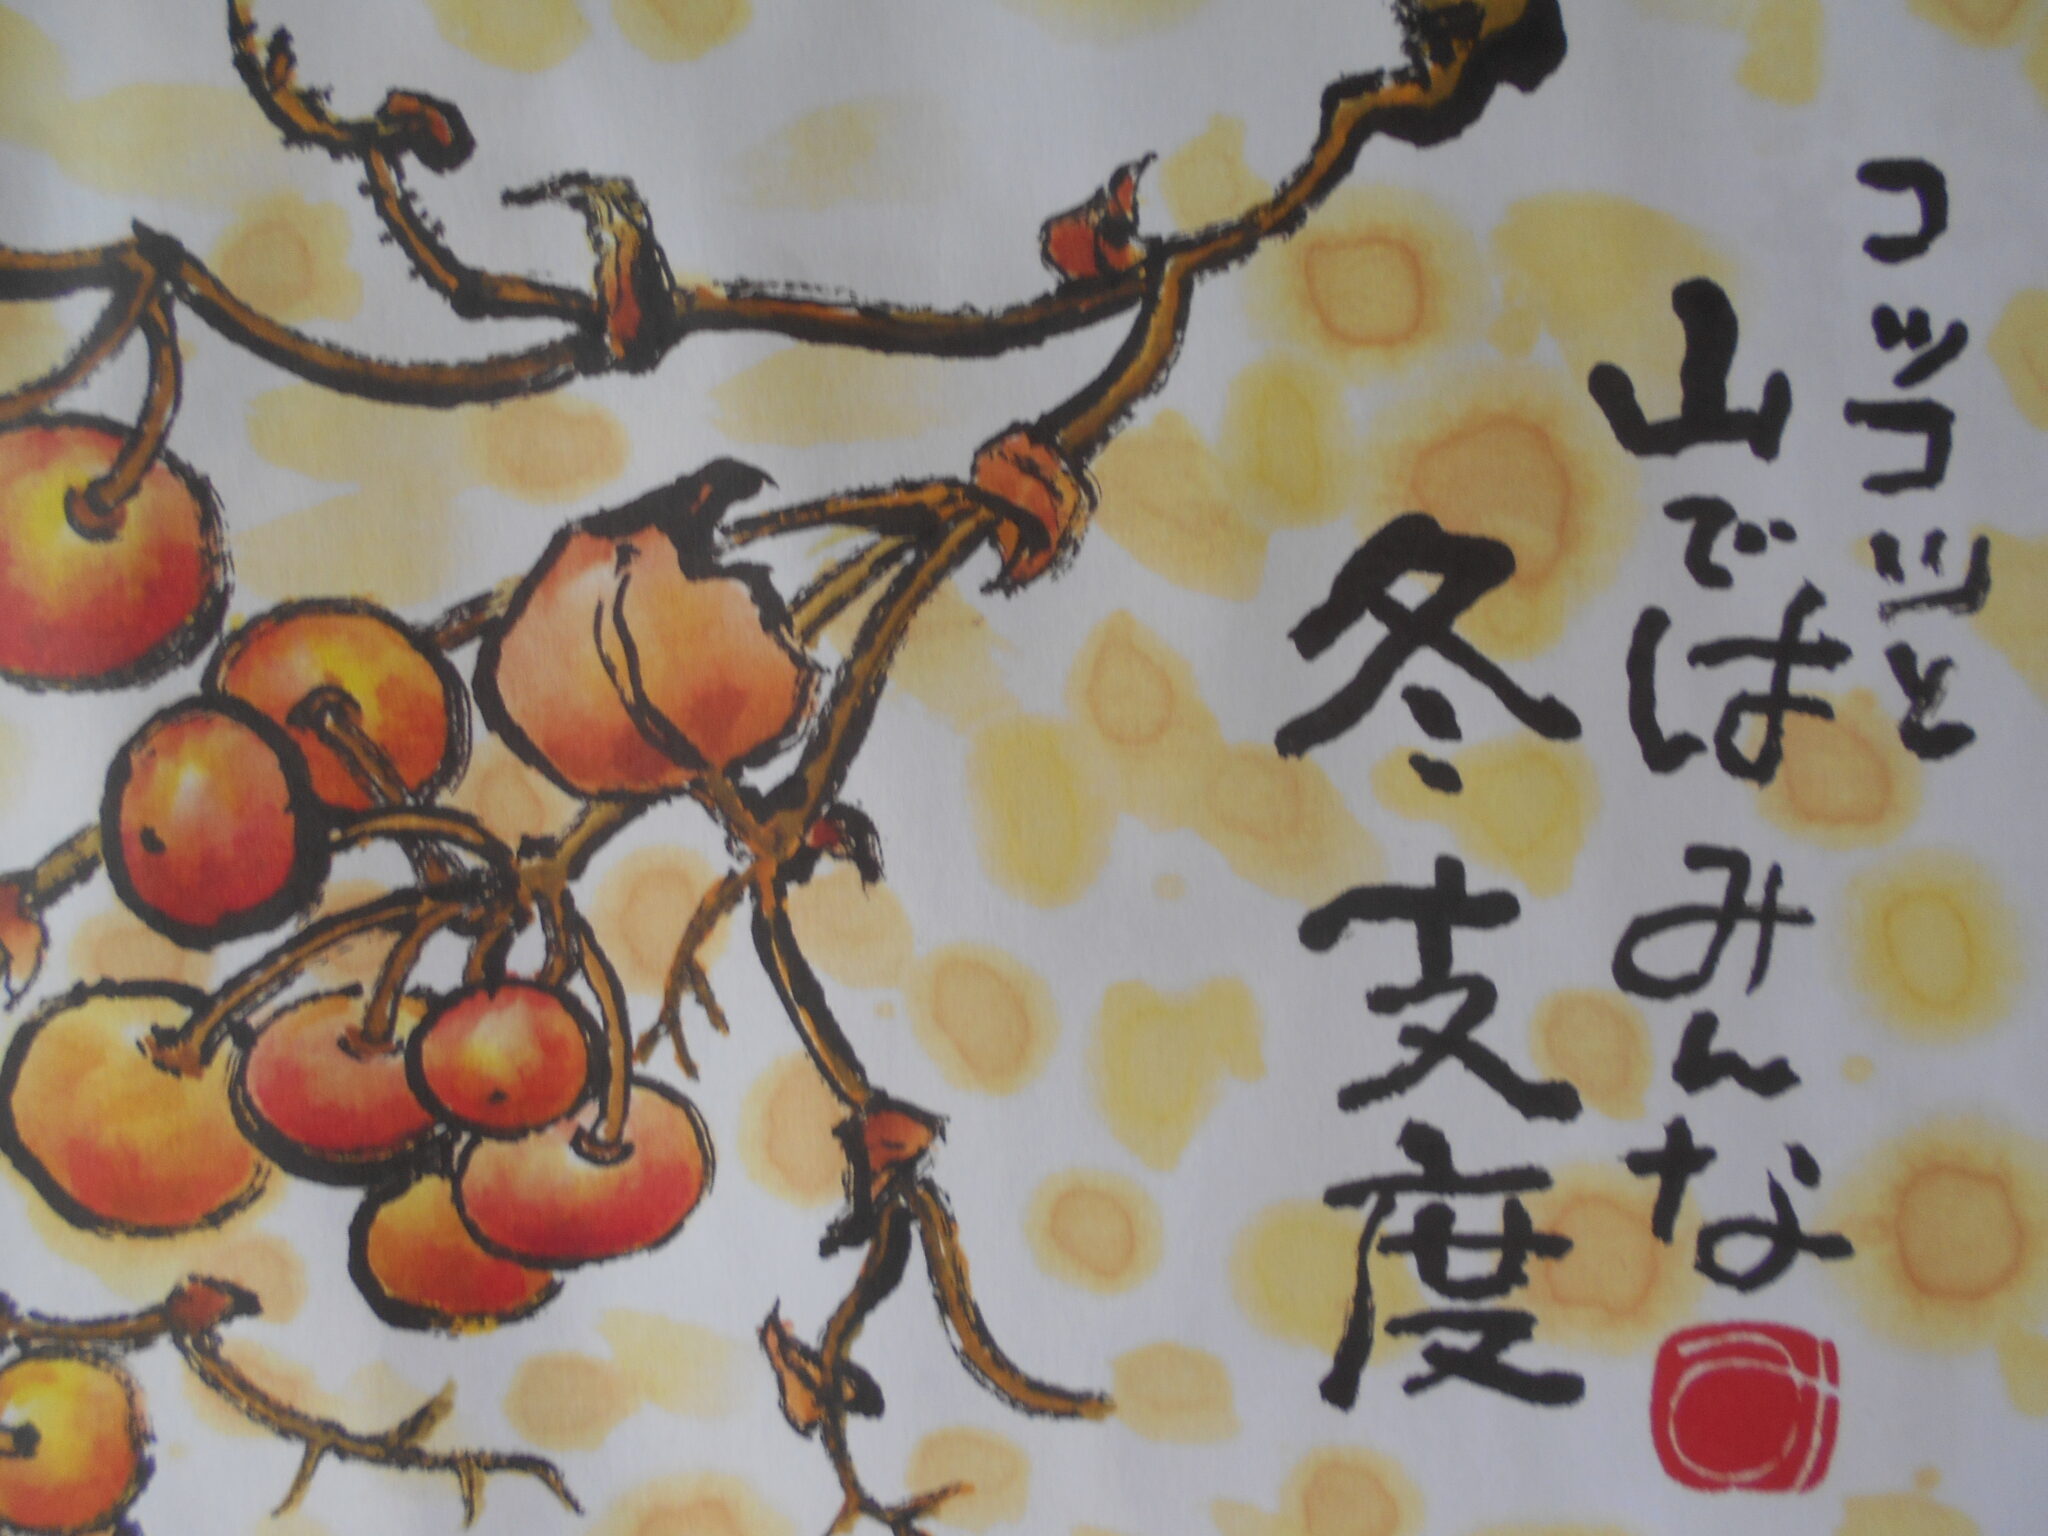 コツコツと
山では みんな
冬支度